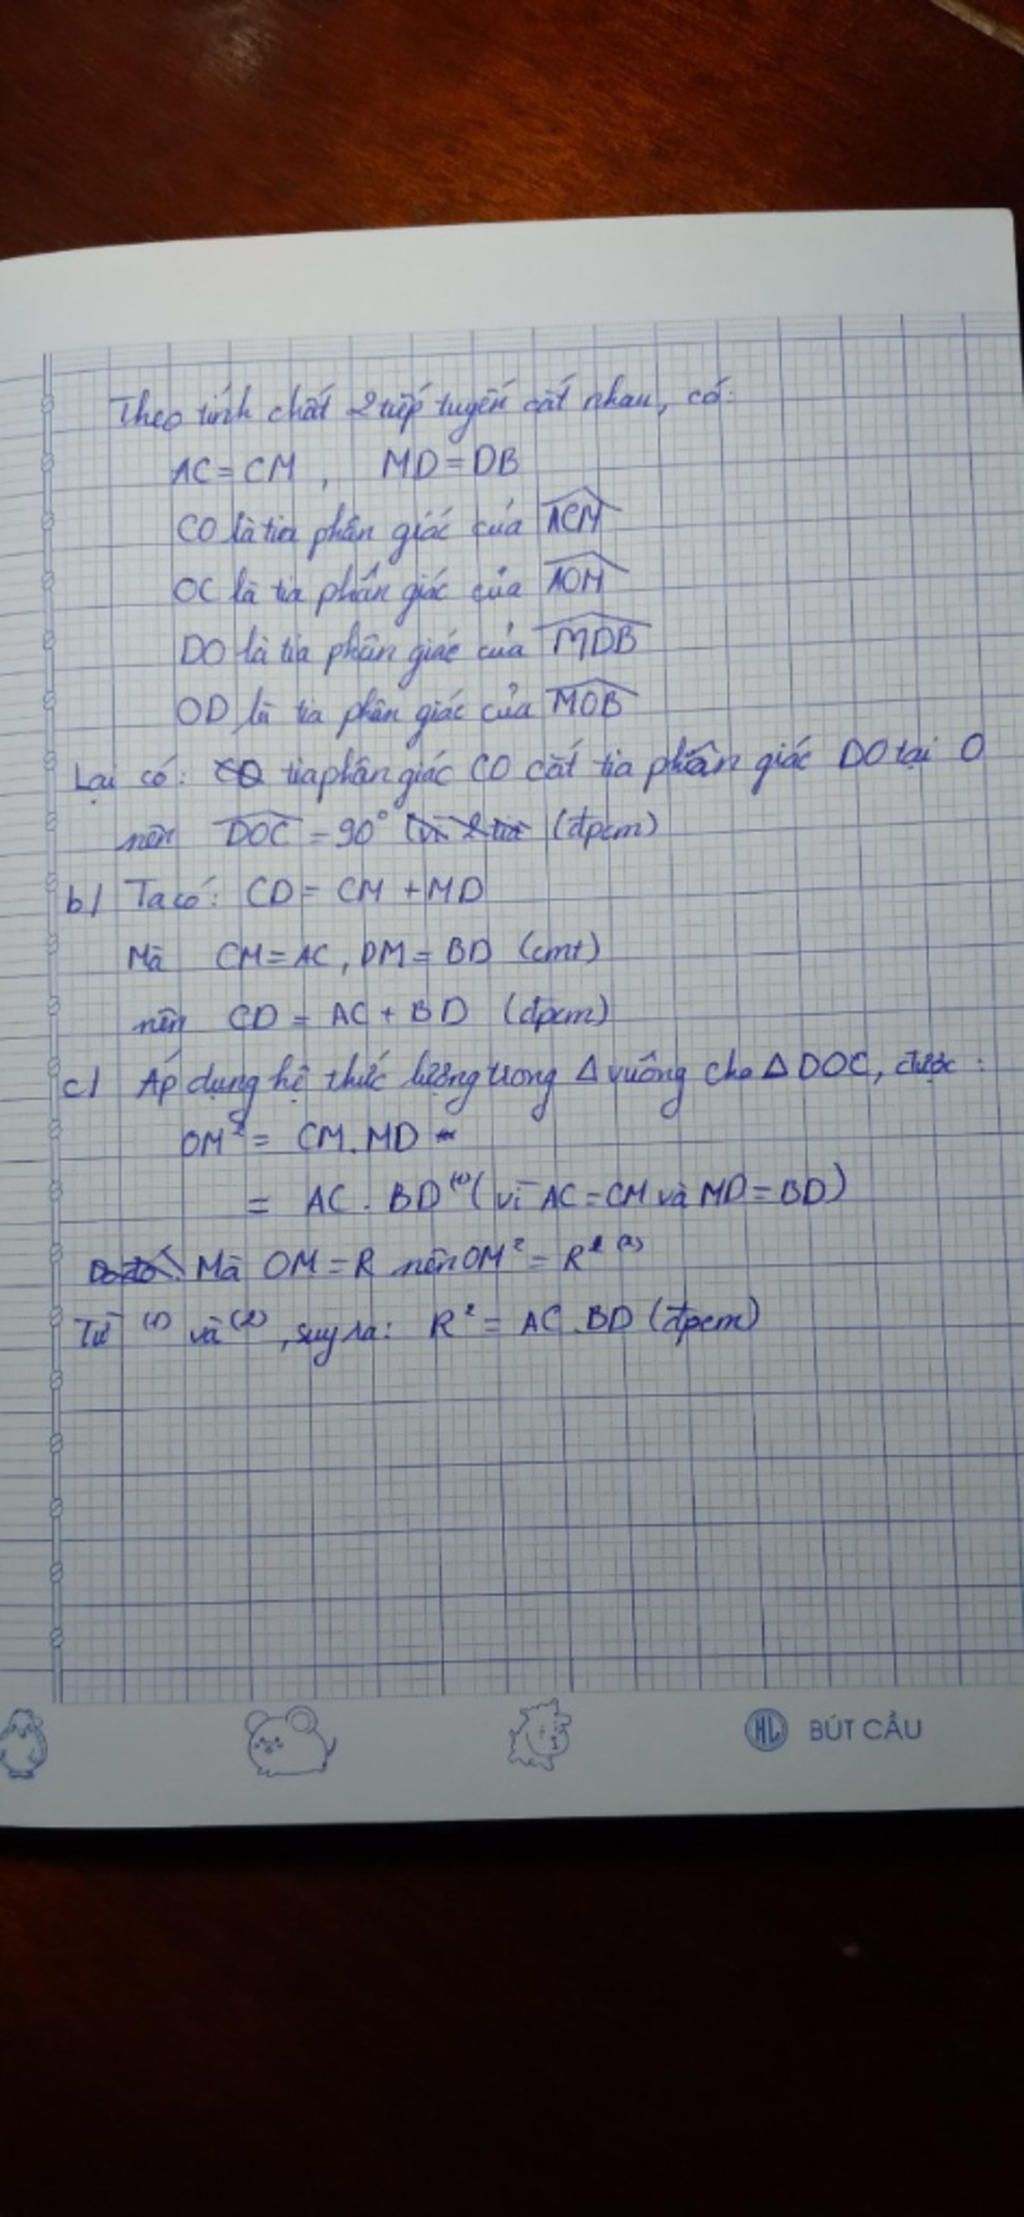 Theo tính chất 2 tiếp tuyến cắt nhau, có:
AC = CM , MD = DB
CO là tia phân giác của ACM
OC là tia phân giác của AOM
DO là tia phân giác của MDB
OD là tia phân giác của MOB
Lại có: tia phân giác CO cắt tia phân giác DO tại O
nên DOC = 90° (đpcm)
b/ Ta có: CD = CM + MD
Mà CM = AC, DM = BD (cmt)
nên CD = AC + BD (đpcm)
c/ Áp dụng hệ thức lượng trong Δ vuông cho Δ DOC, được:
OM² = CM.MD
= AC . BD (1) (vì AC = CM và MD = BD)
Mà OM = R nên OM² = R² (2)
Từ (1) và (2), suy ra: R² = AC.BD (đpcm)
HL BÚT CẦU